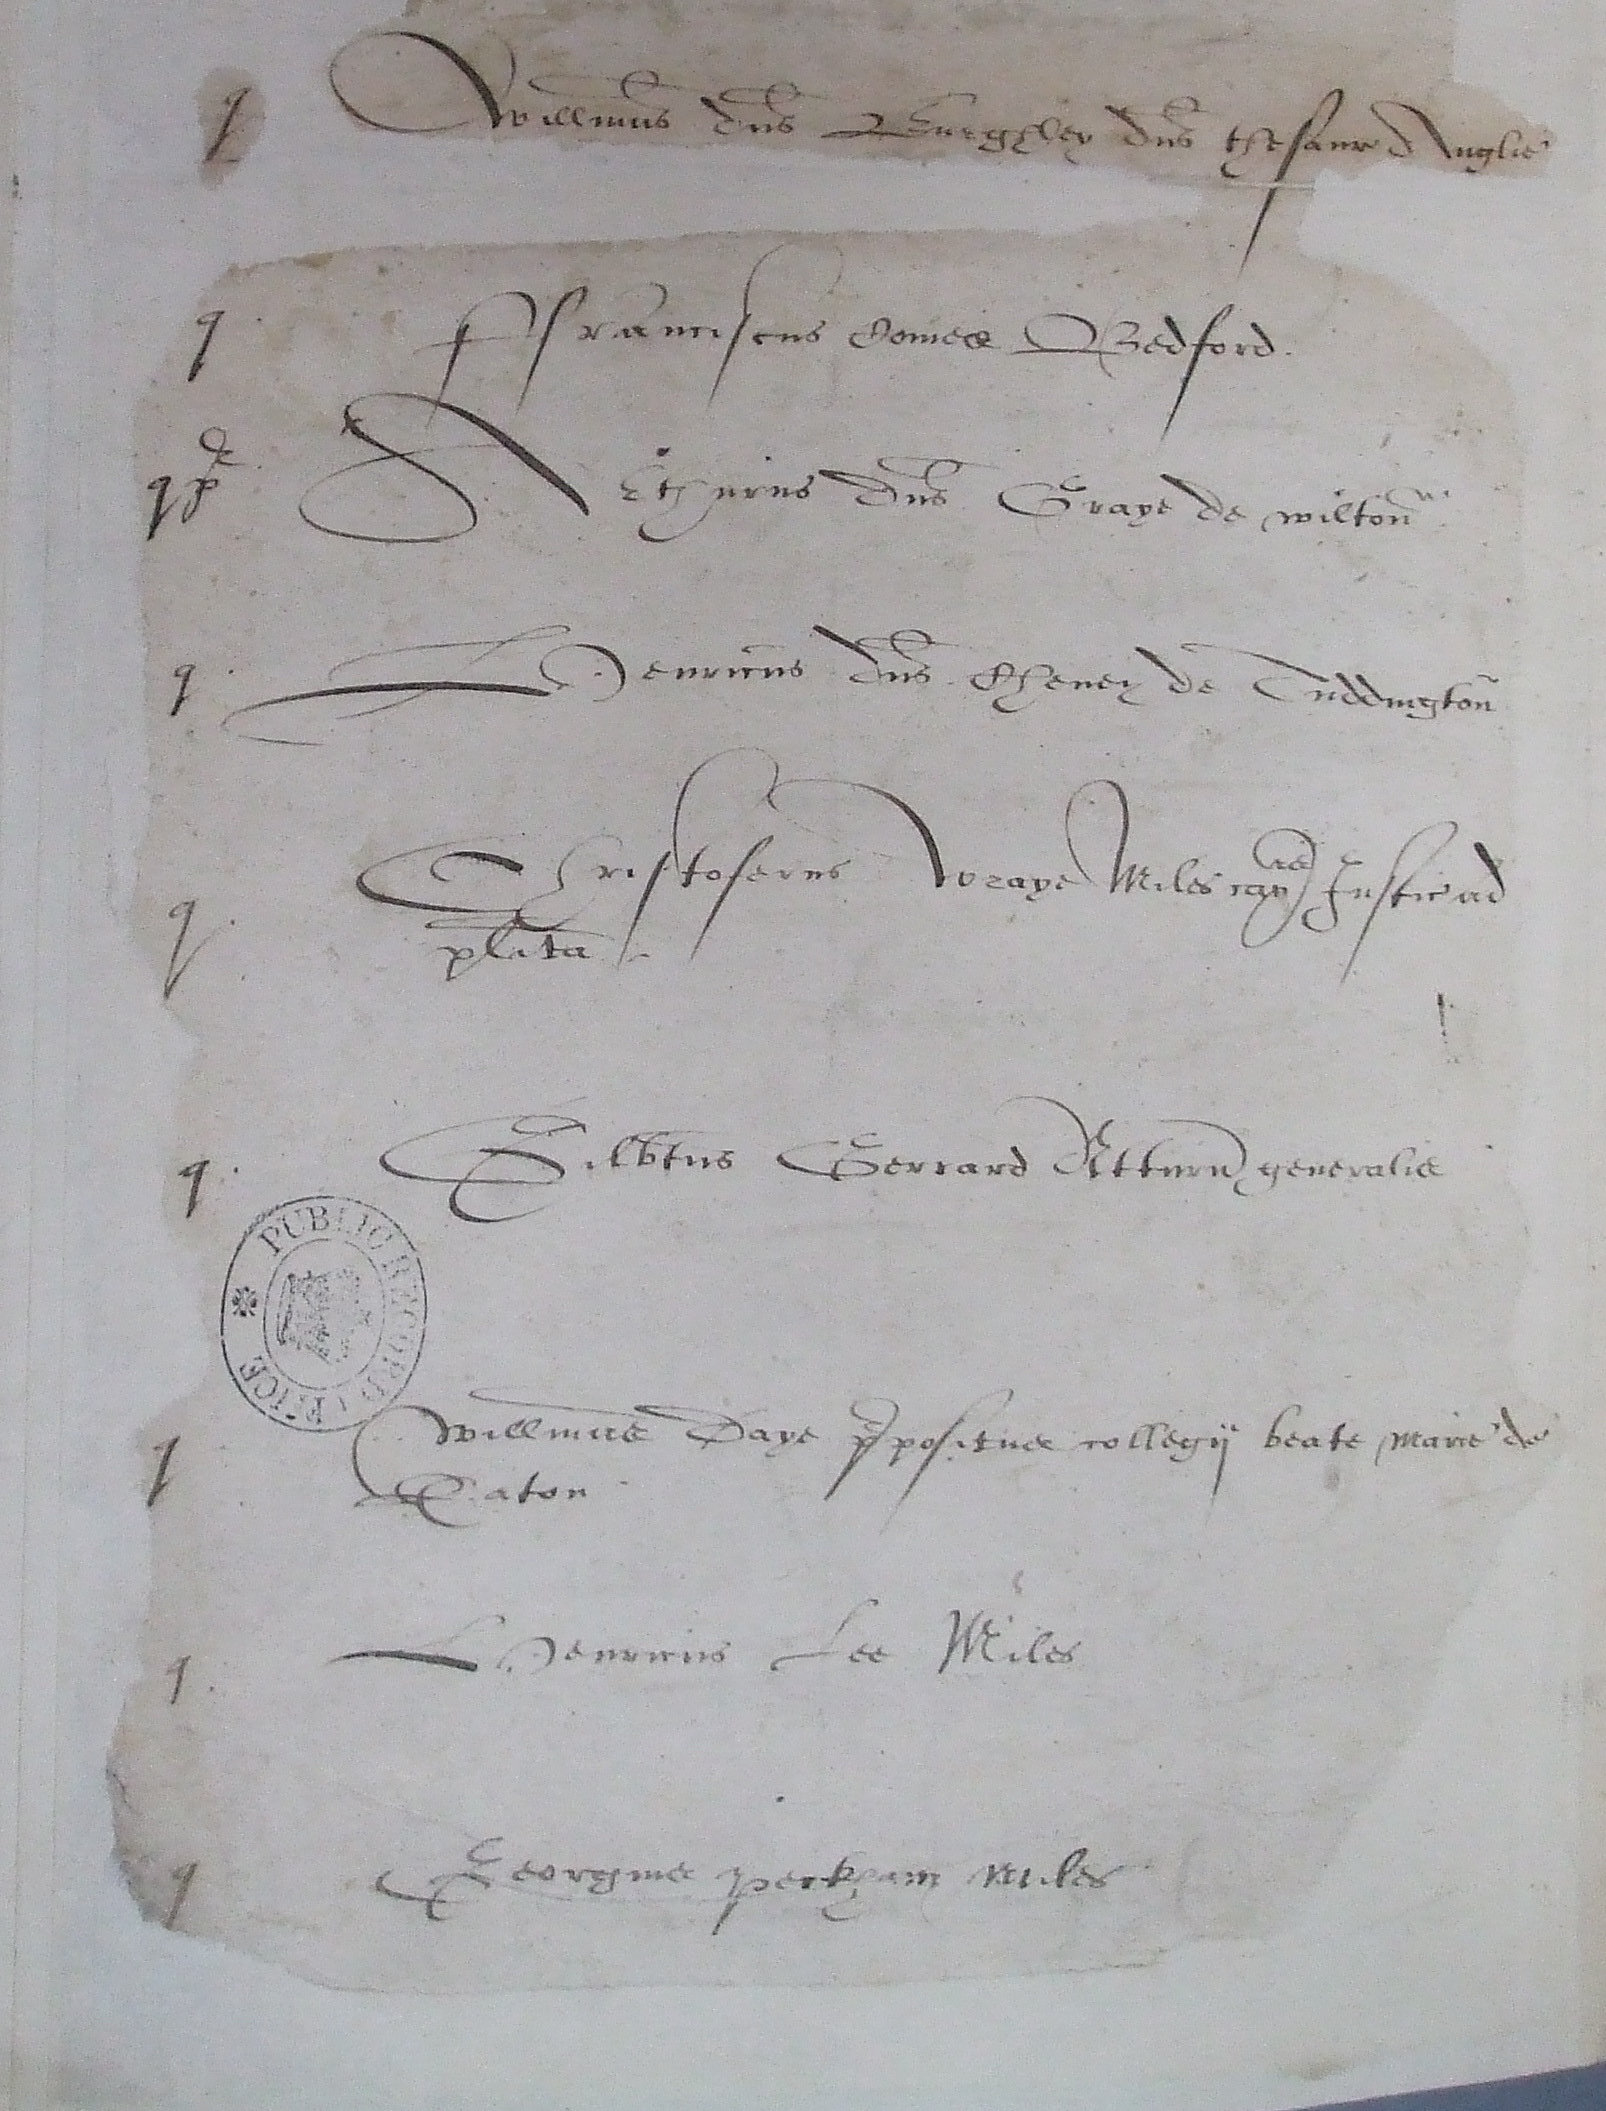 q Willmus dns Burghley dns thesaur Anglie
q. Ffranciscus Comes Bedford.
q Arthurus dns Graye de wilton
q. Henricus dns Cheney de Tuddington
q. Christoferus Wraye Miles capit Justic ad
plita
q. Gilbtus Gerrard Atturn generalis
PUBLIC RECORD OFFICE
q Willmus Daye ppositus collegij beate marie de
Eaton
q. Henricus Lee Miles
q Georgius peckham Miles